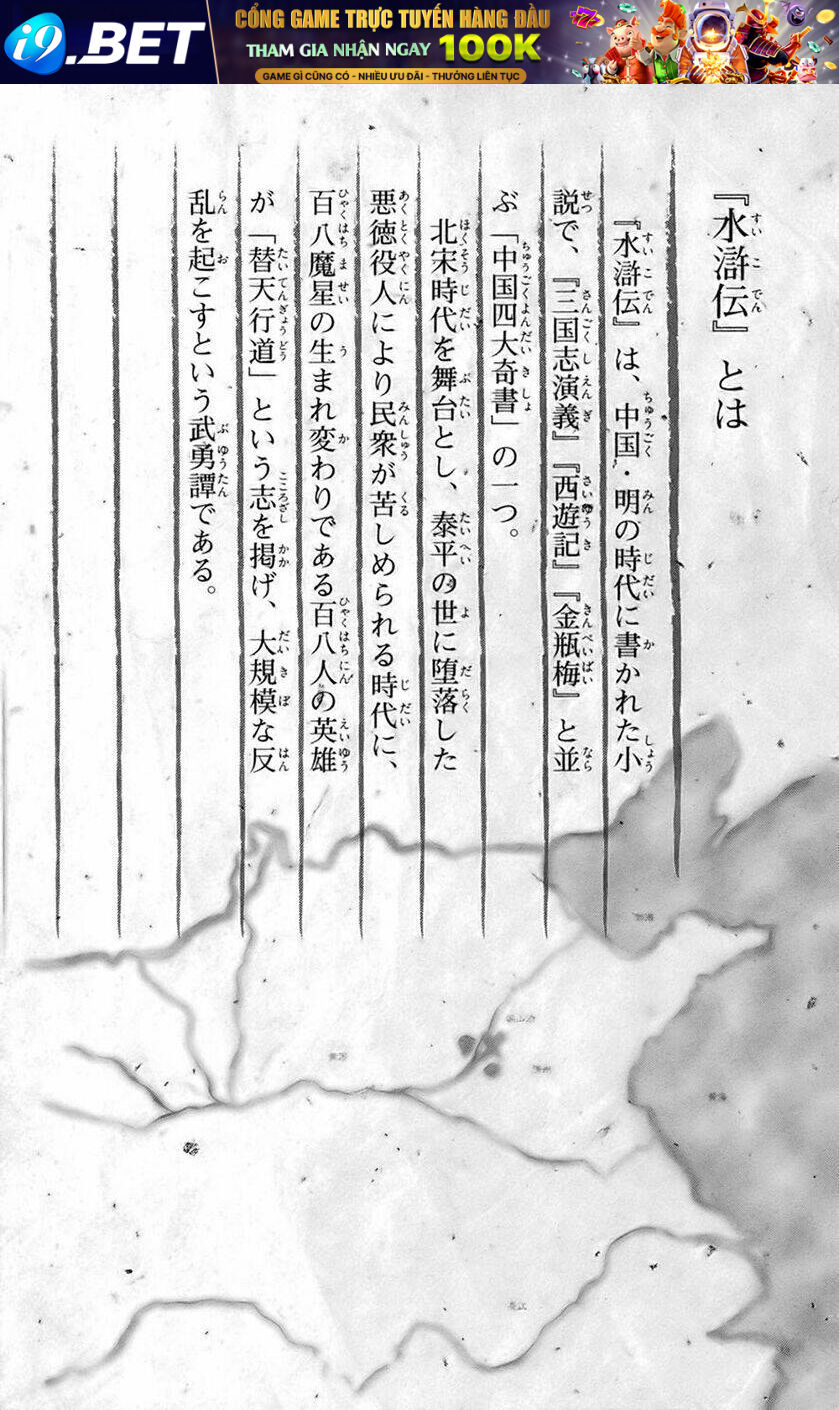 i9.BET
CỔNG GAME TRỰC TUYẾN HÀNG ĐẦU
THAM GIA NHẬN NGAY 100K
GAME GÌ CŨNG CÓ - NHIỀU ƯU ĐÃI - THƯỞNG LIÊN TỤC
『水滸伝』とは
『水滸伝』は、中国・明の時代に書かれた小
説で、『三国志演義』『西遊記』『金瓶梅』と並
ぶ「中国四大奇書」の一つ。
北宋時代を舞台とし、泰平の世に堕落した
悪徳役人により民衆が苦しめられる時代に、
百八魔星の生まれ変わりである百八人の英雄
が「替天行道」という志を掲げ、大規模な反
乱を起こすという武勇譚である。
梁山泊
黄海
長江